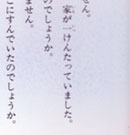 せん。
家が一けんたっていました。
のでしょうか。
ません。
こにすんでいたのでしょうか。